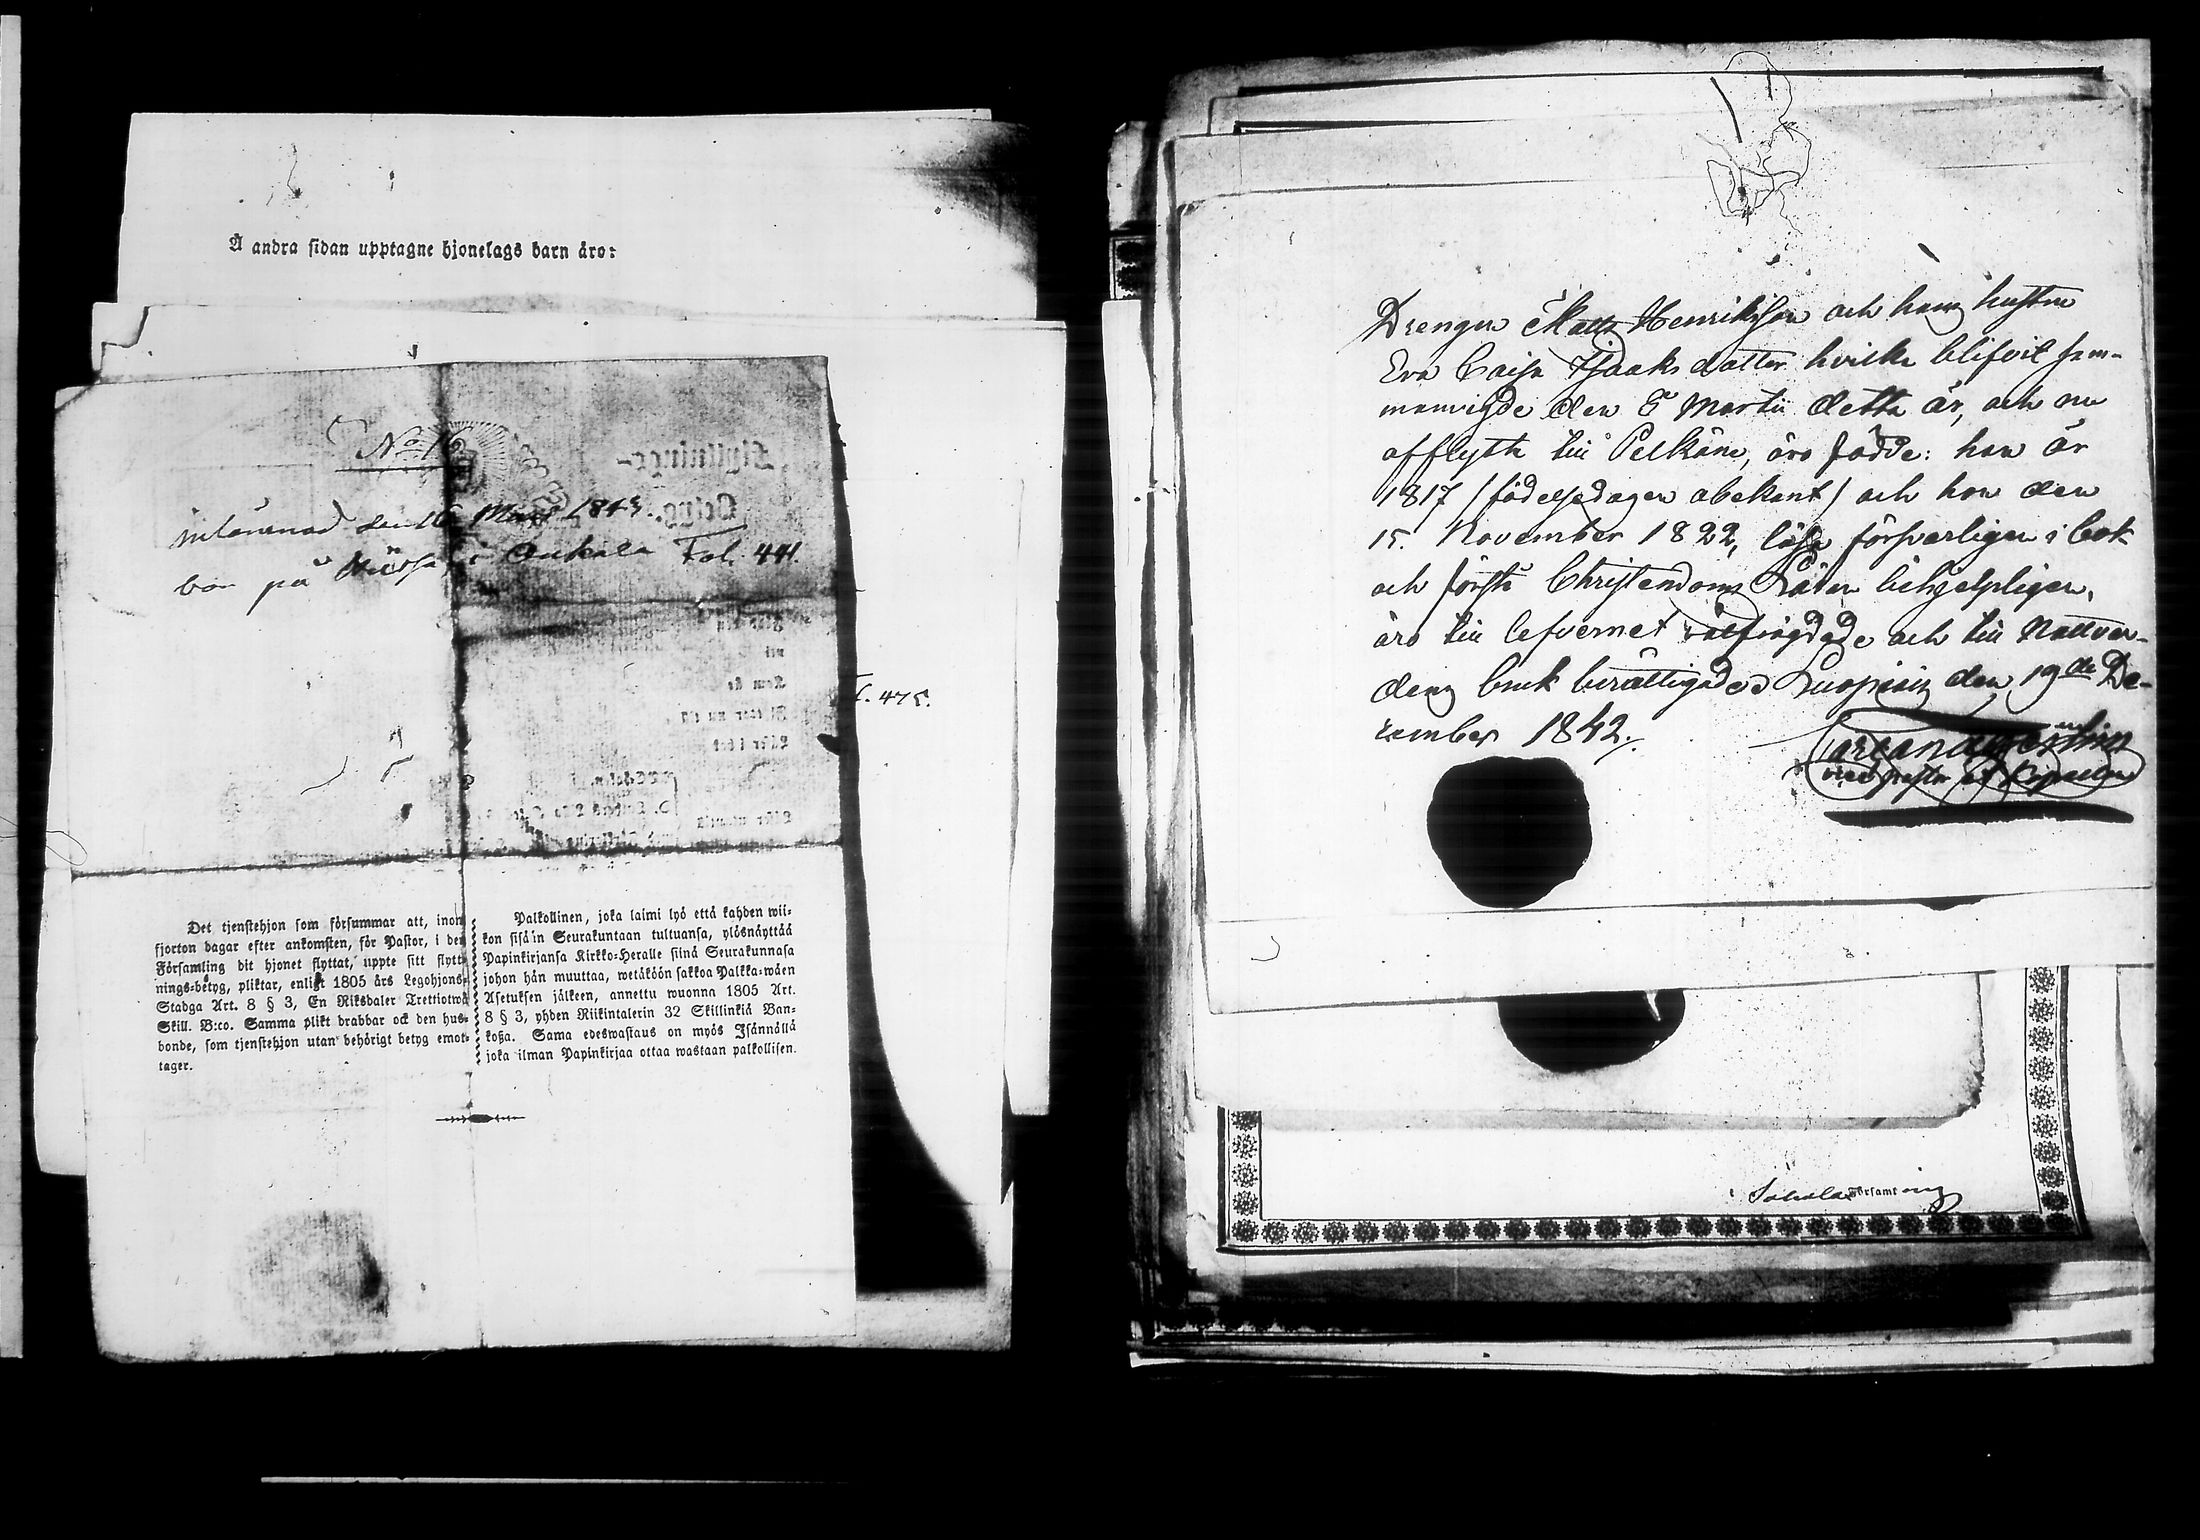 Å andra sidan upptagne hjonelags barn äro:
No 16
inlämnad den 16 Mars 1843.
bor på i Aukala Fol. 441.
475.
Det tjenstehjon som försummar att, inom
fjorton dagar efter ankomsten, för Pastor, i den
Församling dit hjonet flyttat, uppte sitt flytt-
nings-bétyg, pliktar, enligt 1805 års Legohjons-
Stadga Art. 8 § 3, En Riksdaler Trettiotwå
Skill. B:co. Samma plikt drabbar ock den hus-
bonde, som tjenstehjon utan behörigt betyg emot-
tager.
Palkollinen, joka laimi lyö että kahden wii-
kon sisä'in Seurakuntaan tultuansa, ylösnäyttää
Papinkirjansa Kirkko-Heralle siinä Seurakunnasa
johon hän muuttaa, wetäköön sakkoa Palkka-wäen
Asetuksen jälkeen, annettu wuonna 1805 Art.
8 § 3, yhden Riikintalerin 32 Skillinkiä Ban-
koßa. Sama edeswastaus on myös Isännällä
joka ilman Papinkirjaa ottaa wastaan palkollisen.
Drengen Matts Henriksson och hans hustru
Eva Caisa Isaaksdotter hvilka blifvit sam-
manvigde den Martii detta år, och nu
afflytta till Pelkäne, äro födde: han år
1817 /födelsedagen obekant/ och hon den
15. November 1822, läsa försvarligen i bok
och förstå Christendoms Läran hjelpligen,
äro till lefvernet välfrägdade och till Nattvar-
dens bruk berättigade Luopiois den 19de De-
cember 1842.
Carl
vice pastor
Församling